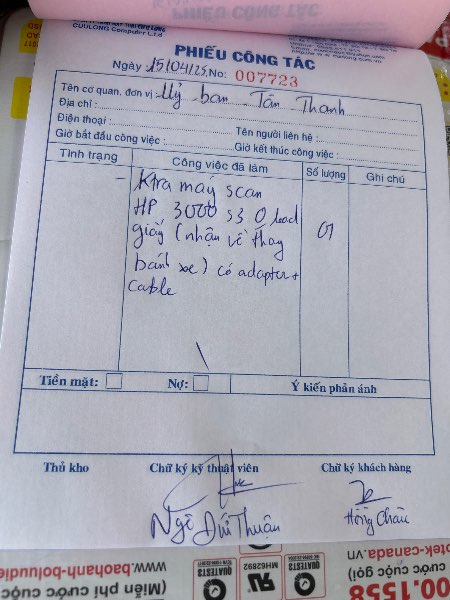 CUULONG Computer Ltd
PHIẾU CÔNG TÁC
Ngày 15/04/25 No: 007723
Tên cơ quan, đơn vị: Uỷ ban Tân Thanh
Địa chỉ:
Điện thoại: Tên người liên hệ:
Giờ bắt đầu công việc: Giờ kết thúc công việc:
Tình trạng Công việc đã làm Số lượng Ghi chú
- Ktra máy scan
HP 3000 s3 0 load
giấy (nhận về thay 01
bánh xe) có adapter +
cable
Tiền mặt: Nợ: Ý kiến phản ánh
Thủ kho Chữ ký kỹ thuật viên Chữ ký khách hàng
Ngô Đức Thuận Hồng Châu
otek-canada.vn
www.baohanh-boluudie
00.1558
(Miễn phí cước cuộc gọi)
QUATESTS
MH62892
QUATESTS